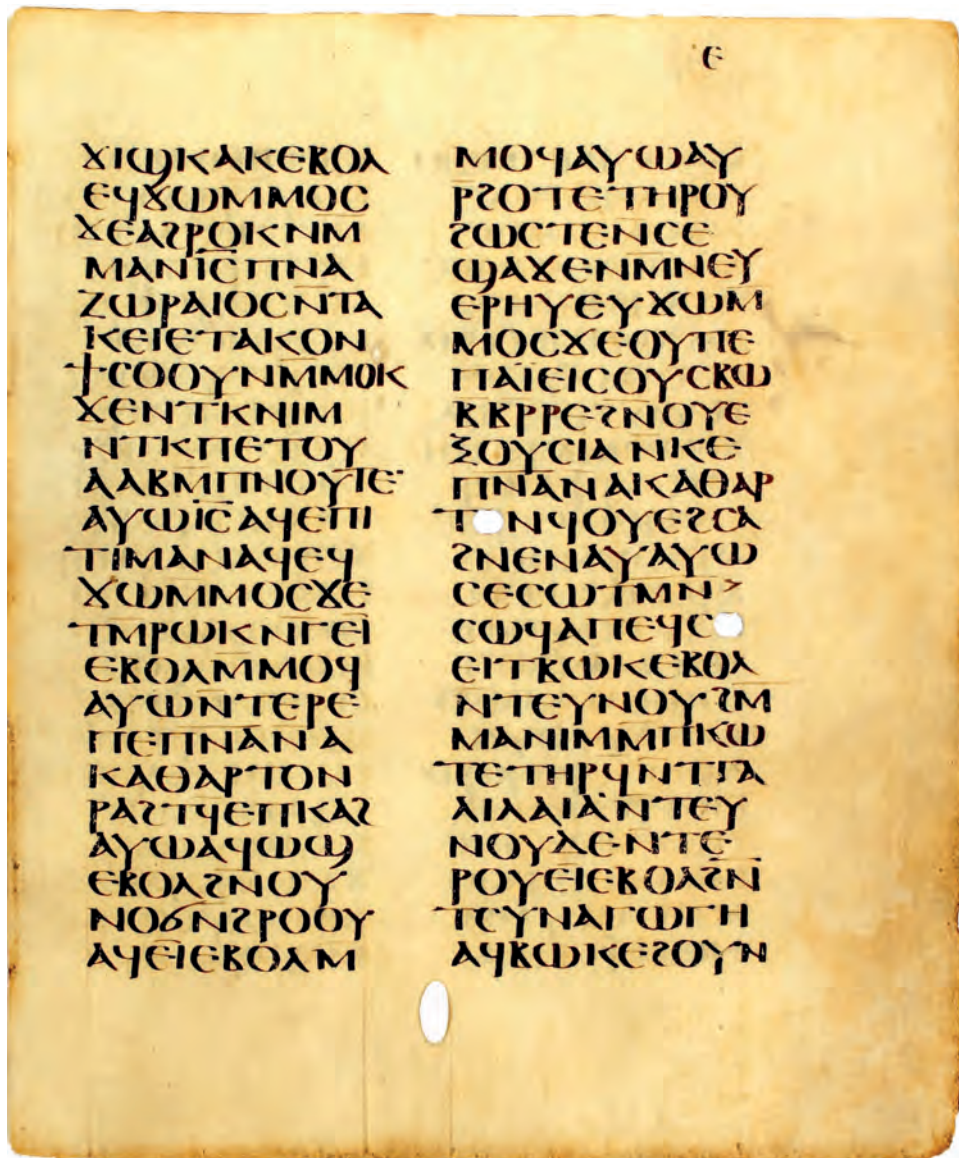 ⲉ
ϫⲓϣⲕⲁⲕⲉⲃⲟⲗ
ⲉϥϫⲱⲙⲙⲟⲥ
ϫⲉⲁϩⲣⲟⲕⲛⲙ
ⲙⲁⲛⲓ̅ⲥ̅ⲡⲛⲁ
ⲍⲱⲣⲁⲓⲟⲥⲛⲧⲁ
ⲕⲉⲓⲉⲧⲁⲕⲟⲛ
ϯⲥⲟⲟⲩⲛⲙⲙⲟⲕ
ϫⲉⲛⲧⲕⲛⲓⲙ
ⲛⲧⲕⲡⲉⲧⲟⲩ
ⲁⲁⲃⲙⲡⲛⲟⲩⲧⲉ
ⲁⲩⲱⲓ̅ⲥ̅ⲁϥⲉⲡⲓ
ⲧⲓⲙⲁⲛⲁϥⲉϥ
ϫⲱⲙⲙⲟⲥϫⲉ
ⲧⲙⲣⲱⲕⲛⲅⲉⲓ
ⲉⲃⲟⲗⲙⲙⲟϥ
ⲁⲩⲱⲛⲧⲉⲣⲉ
ⲡⲉⲡⲛⲁⲛⲁ
ⲕⲁⲑⲁⲣⲧⲟⲛ
ⲣⲁϩⲧϥⲉⲡⲕⲁϩ
ⲁⲩⲱⲁϥⲱϣ
ⲉⲃⲟⲗϩⲛⲟⲩ
ⲛⲟϭⲛϩⲣⲟⲟⲩ
ⲁϥⲉⲓⲉⲃⲟⲗⲙ
ⲙⲟϥⲁⲩⲱⲁⲩ
ⲣϩⲟⲧⲉⲧⲏⲣⲟⲩ
ϩⲱⲥⲧⲉⲛⲥⲉ
ϣⲁϫⲉⲛⲙⲛⲉⲩ
ⲉⲣⲏⲩⲉⲩϫⲱⲙ
ⲙⲟⲥϫⲉⲟⲩⲡⲉ
ⲡⲁⲓⲉⲓⲥⲟⲩⲥⲃⲱ
ⲃⲃⲣⲣⲉϩⲛⲟⲩⲉ
ⲝⲟⲩⲥⲓⲁⲛⲕⲉ
ⲡⲛⲁⲛⲁⲕⲁⲑⲁⲣ
ⲧⲟⲛϥⲟⲩⲉϩⲥⲁ
ϩⲛⲉⲛⲁⲩⲁⲩⲱ
ⲥⲉⲥⲱⲧⲙⲛ>
ⲥⲱϥⲁⲡⲉϥⲥ
ⲉⲓⲧⲃⲱⲕⲉⲃⲟⲗ
ⲛⲧⲉⲩⲛⲟⲩϩⲙ
ⲙⲁⲛⲓⲙⲙⲡⲕⲱ
ⲧⲉⲧⲏⲣϥⲛⲧⲅⲁ
ⲗⲓⲗⲁⲓⲁⲛⲧⲉⲩ
ⲛⲟⲩⲇⲉⲛⲧⲉ
ⲣⲟⲩⲉⲓⲉⲃⲟⲗϩⲛ
ⲧⲥⲩⲛⲁⲅⲱⲅⲏ
ⲁϥⲃⲱⲕⲉϩⲟⲩⲛ